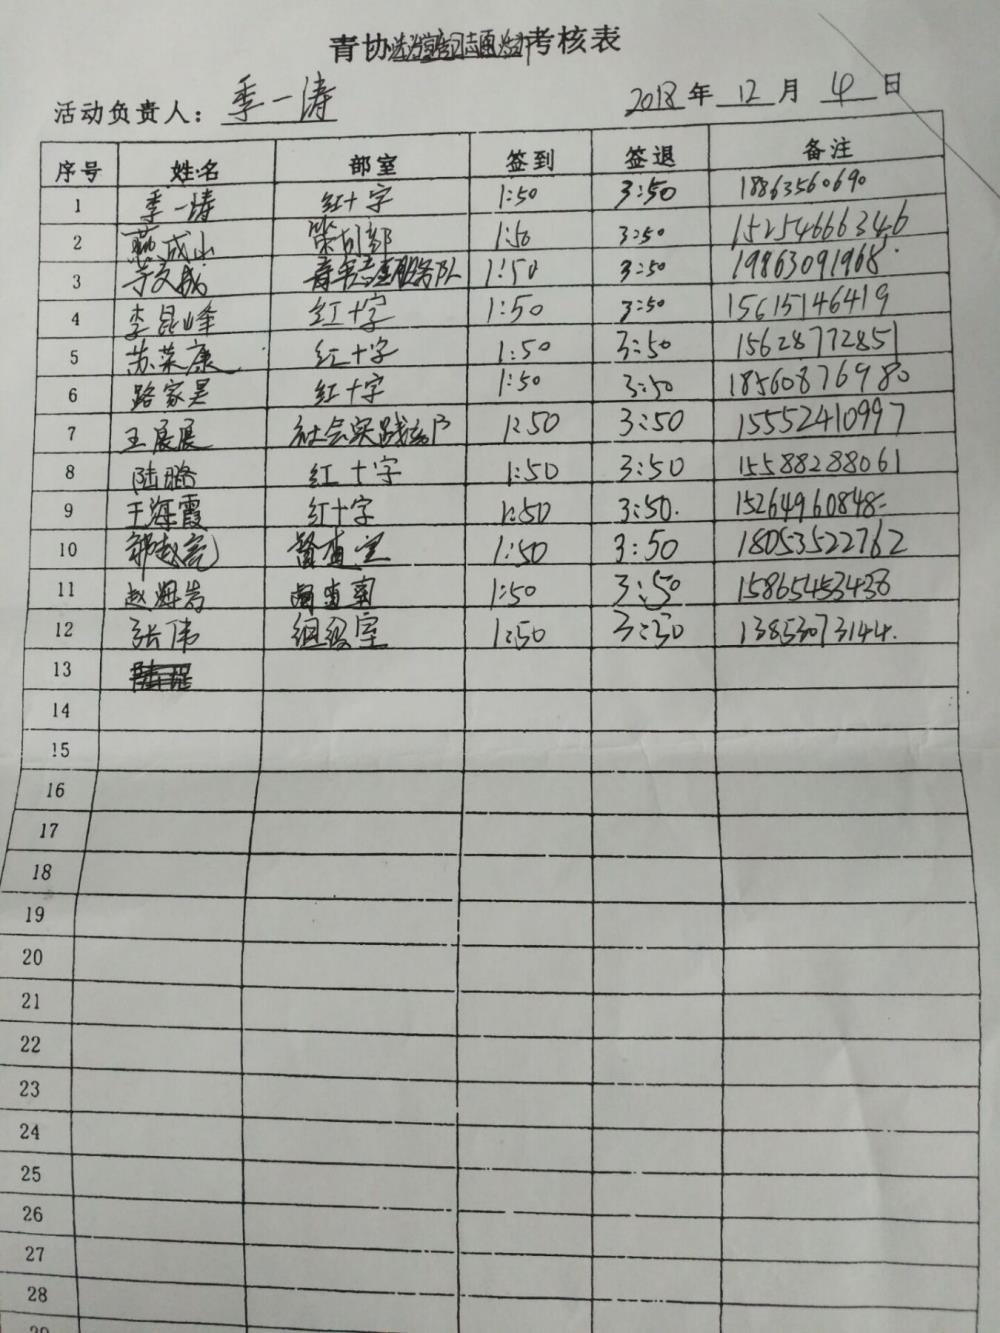 青协 考核表
活动负责人: 季一涛 2018年 12 月 4 日
序号 姓名 部室 签到 签退 备注
1 季一涛 红十字 1:50 3:50 18863560690
2 成山 策划部 1:50 3:50 15254666346
3 1:50 3:50 19863091968
4 李昆峰 红十字 1:50 3:50 15615146419
5 苏荣康 红十字 1:50 3:50 15628772851
6 路家昊 红十字 1:50 3:50 18560876980
7 王展展 社会实践部 1:50 3:50 15552410997
8 陆璐 红十字 1:50 3:50 15588288061
9 王海霞 红十字 1:50 3:50. 15264960848
10 1:50 3:50 18053522762
11 赵海岩 1:50 3:50 15865453438
12 张伟 组织室 1:50 3:50 13853073144.
13
14
15
16
17
18
19
20
21
22
23
24
25
26
27
28
29